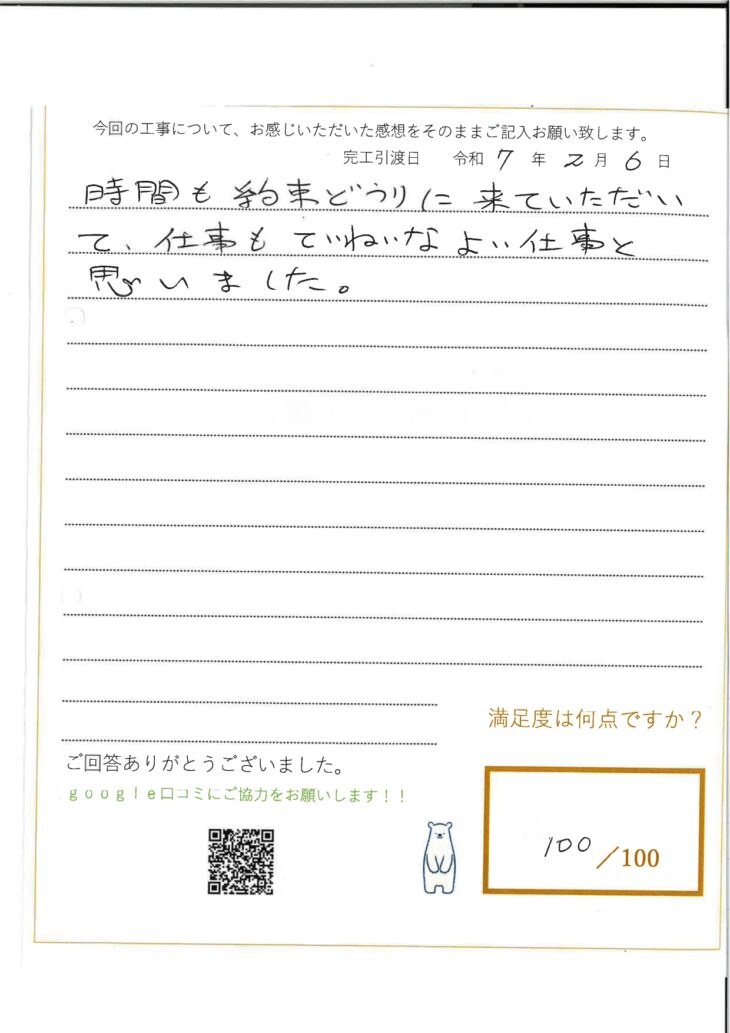 今回の工事について、お感じいただいた感想をそのままご記入お願い致します。
完工引渡日 令和 7 年 2 月 6 日
時間も約束どうりに来ていただい
て、仕事もていねいなよい仕事と
思いました。
満足度は何点ですか？
ご回答ありがとうございました。
google口コミにご協力をお願いします！！
100/100